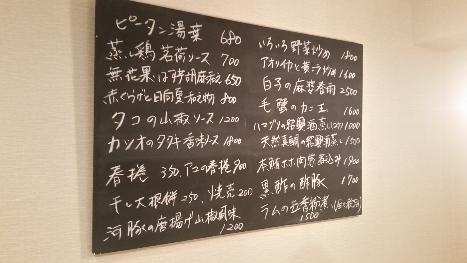 ピータン湯葉 680
蒸し鶏茗荷ソース 700
無花果 胡麻和え 650
赤くらげと日向夏和え物 800
タコの山椒ソース 1200
カツオのタタキ香味ソース 1400
春捲 350. アコの春捲 700
干し大根餅 250. 焼売 200
河豚の唐揚げ山椒風味
1200
いろいろ野菜炒め 1800
アオリイカと黄ニラ炒め 1600
白子の麻婆春雨 2500
毛蟹のカニ玉 1600
ハマグリの紹興酒蒸し 1000
天然真鯛の紹興酒蒸し 1500
本鮪ホホ肉煮込み 1900
黒酢の酢豚 1700
ラムの五香粉煮
1500